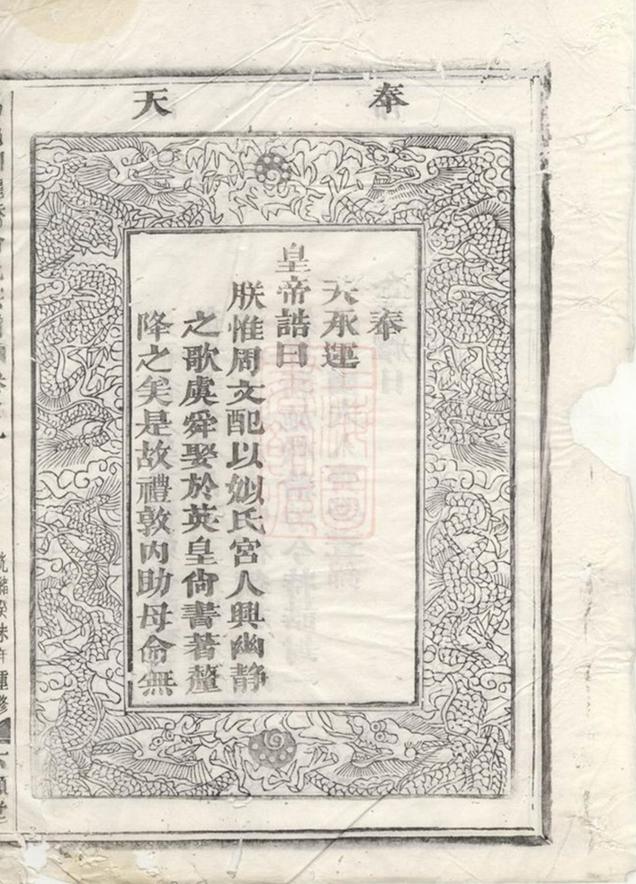 奉天
奉
天承運
皇帝誥曰
朕惟周文配以姒氏宮人興幽靜
之歌虞舜娶於英皇尙書著釐
降之矣是故禮敦內助母命無